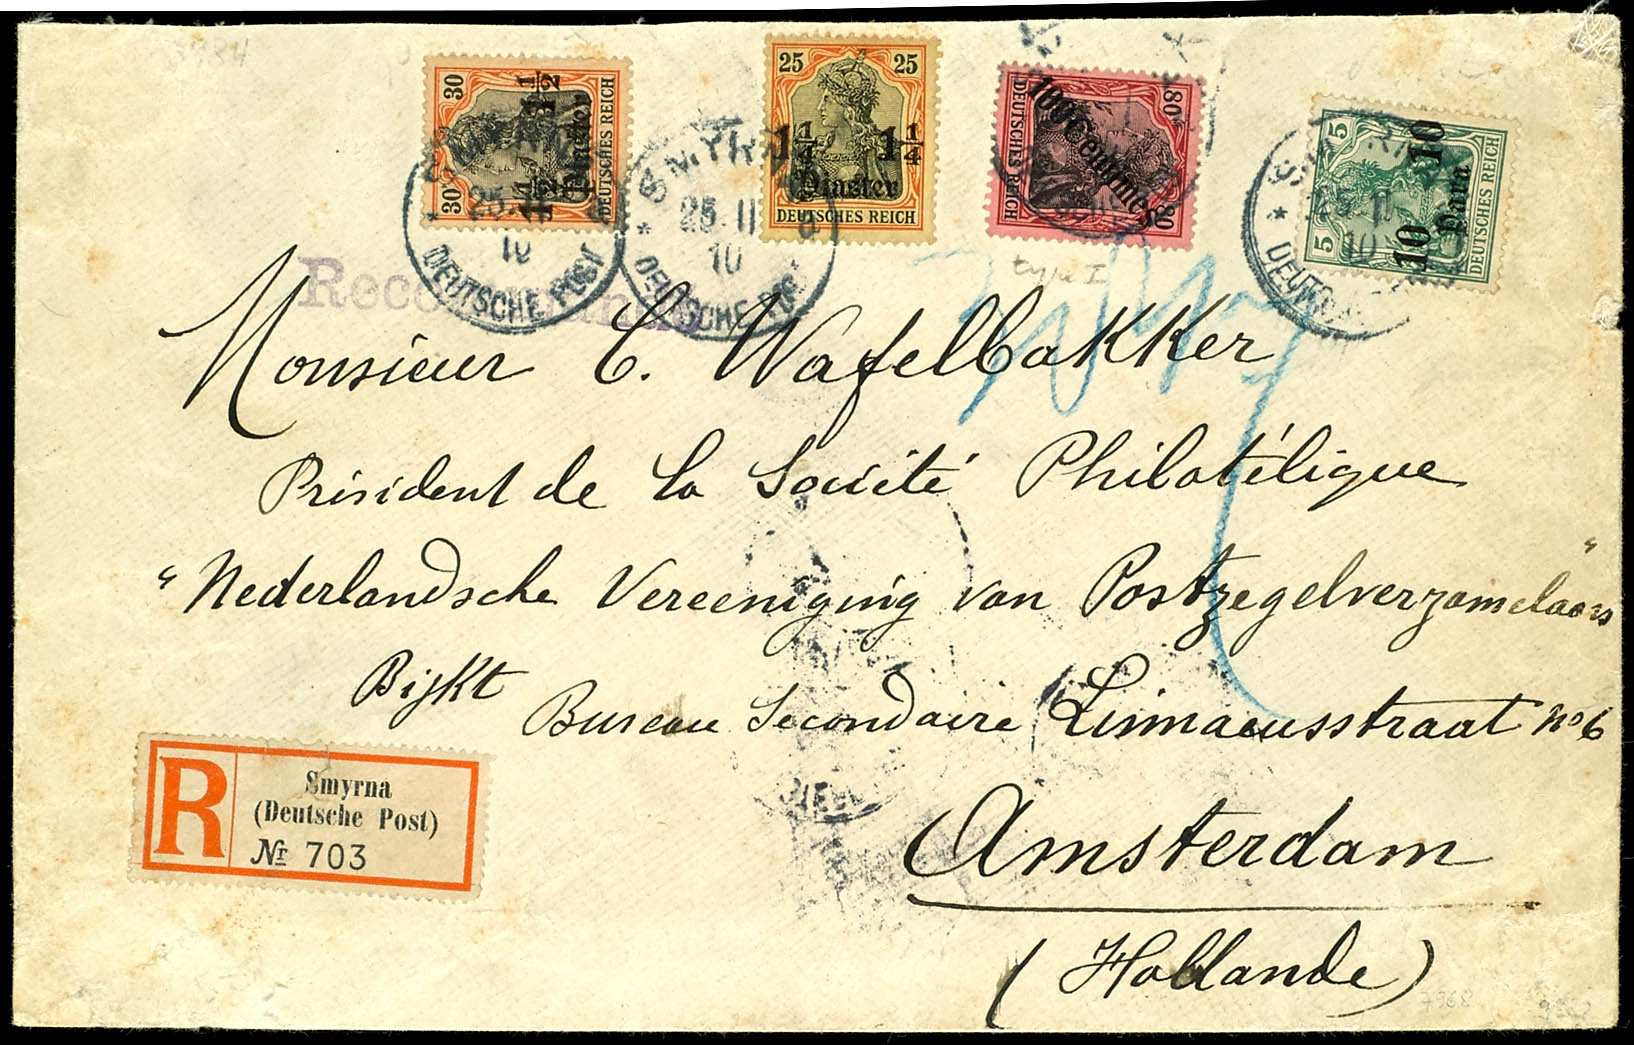 30 30
1 1/2 1 1/2
Piaster
DEUTSCHES REICH
25 25
1 1/4 1 1/4
Piaster
DEUTSCHES REICH
80 80
100 Centimes
DEUTSCHES REICH
5 5
10 10
Para
DEUTSCHES REICH
SMYRNA
25.11
10
DEUTSCHE POST
SMYRNA
25.11
10
DEUTSCHE POST
type I
Monsieur C. Wafelbakker
Président de la Société Philatélique
"Nederlandsche Vereeniging van Postzegelverzamelaars"
Bijkt Bureau Secondaire Linnaeusstraat No 6
Amsterdam
(Hollande)
R
Smyrna
(Deutsche Post)
Nr 703